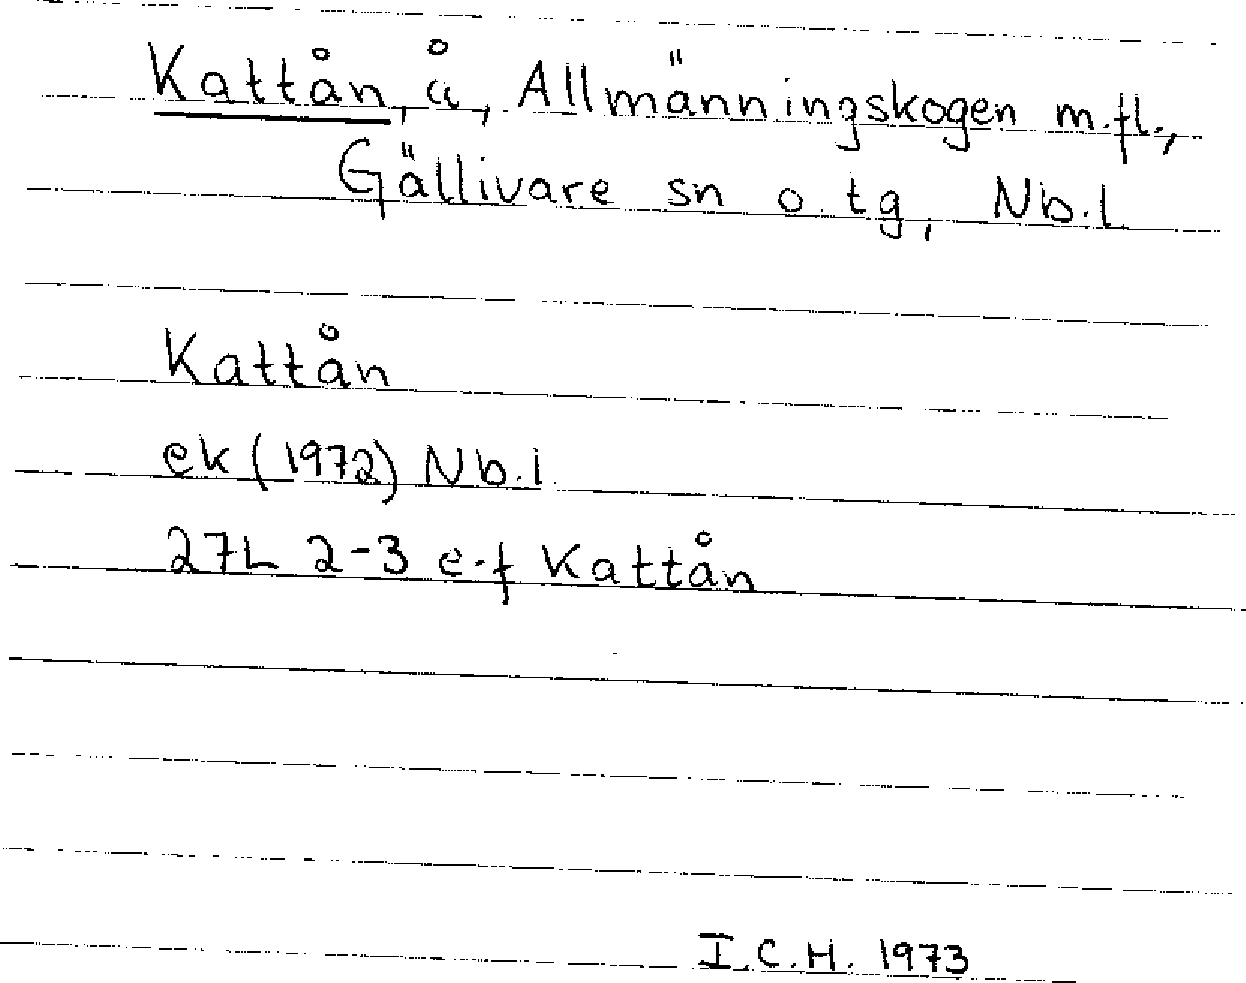 Kattån, å, Allmänningskogen m.fl.,
Gällivare sn o. tg, Nb.l
Kattån
ek (1972) Nb.l
27L 2-3 e-f Kattån
I.C.H. 1973